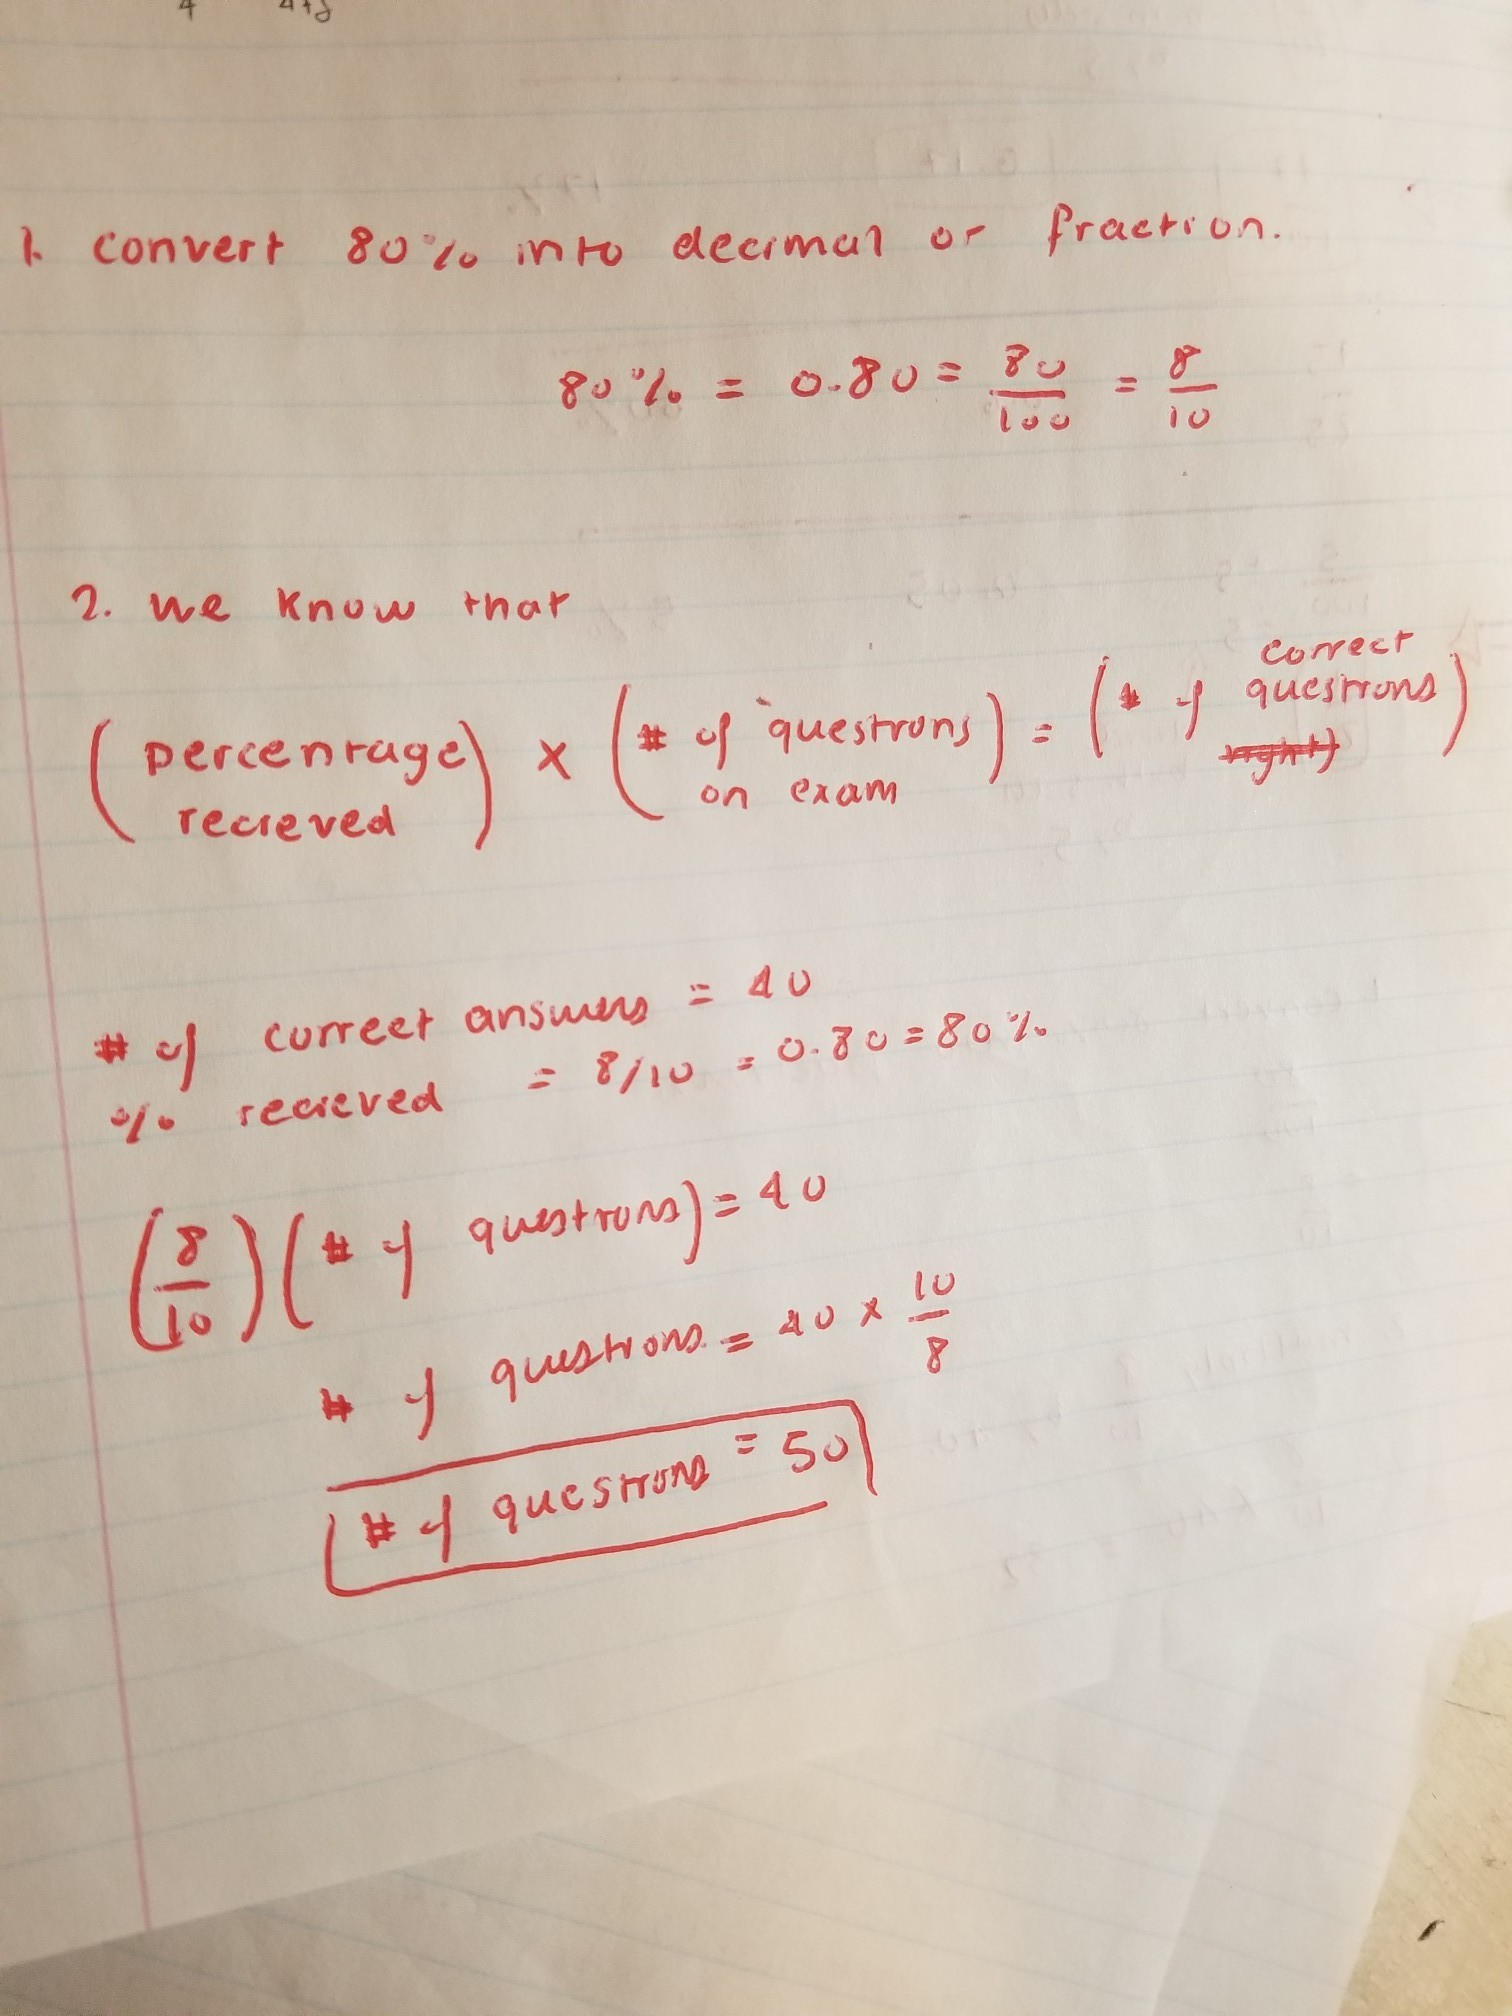 4 4+8
1. convert 80% into decimal or fraction.
80% = 0.80 = 80/100 = 8/10
2. we know that
(percentage recieved) × (# of questions on exam) = (# of correct questions right)
# of correct answers = 40
% recieved = 8/10 = 0.80 = 80%
(8/10)(# of questions) = 40
# of questions = 40 × 10/8
# of questions = 50